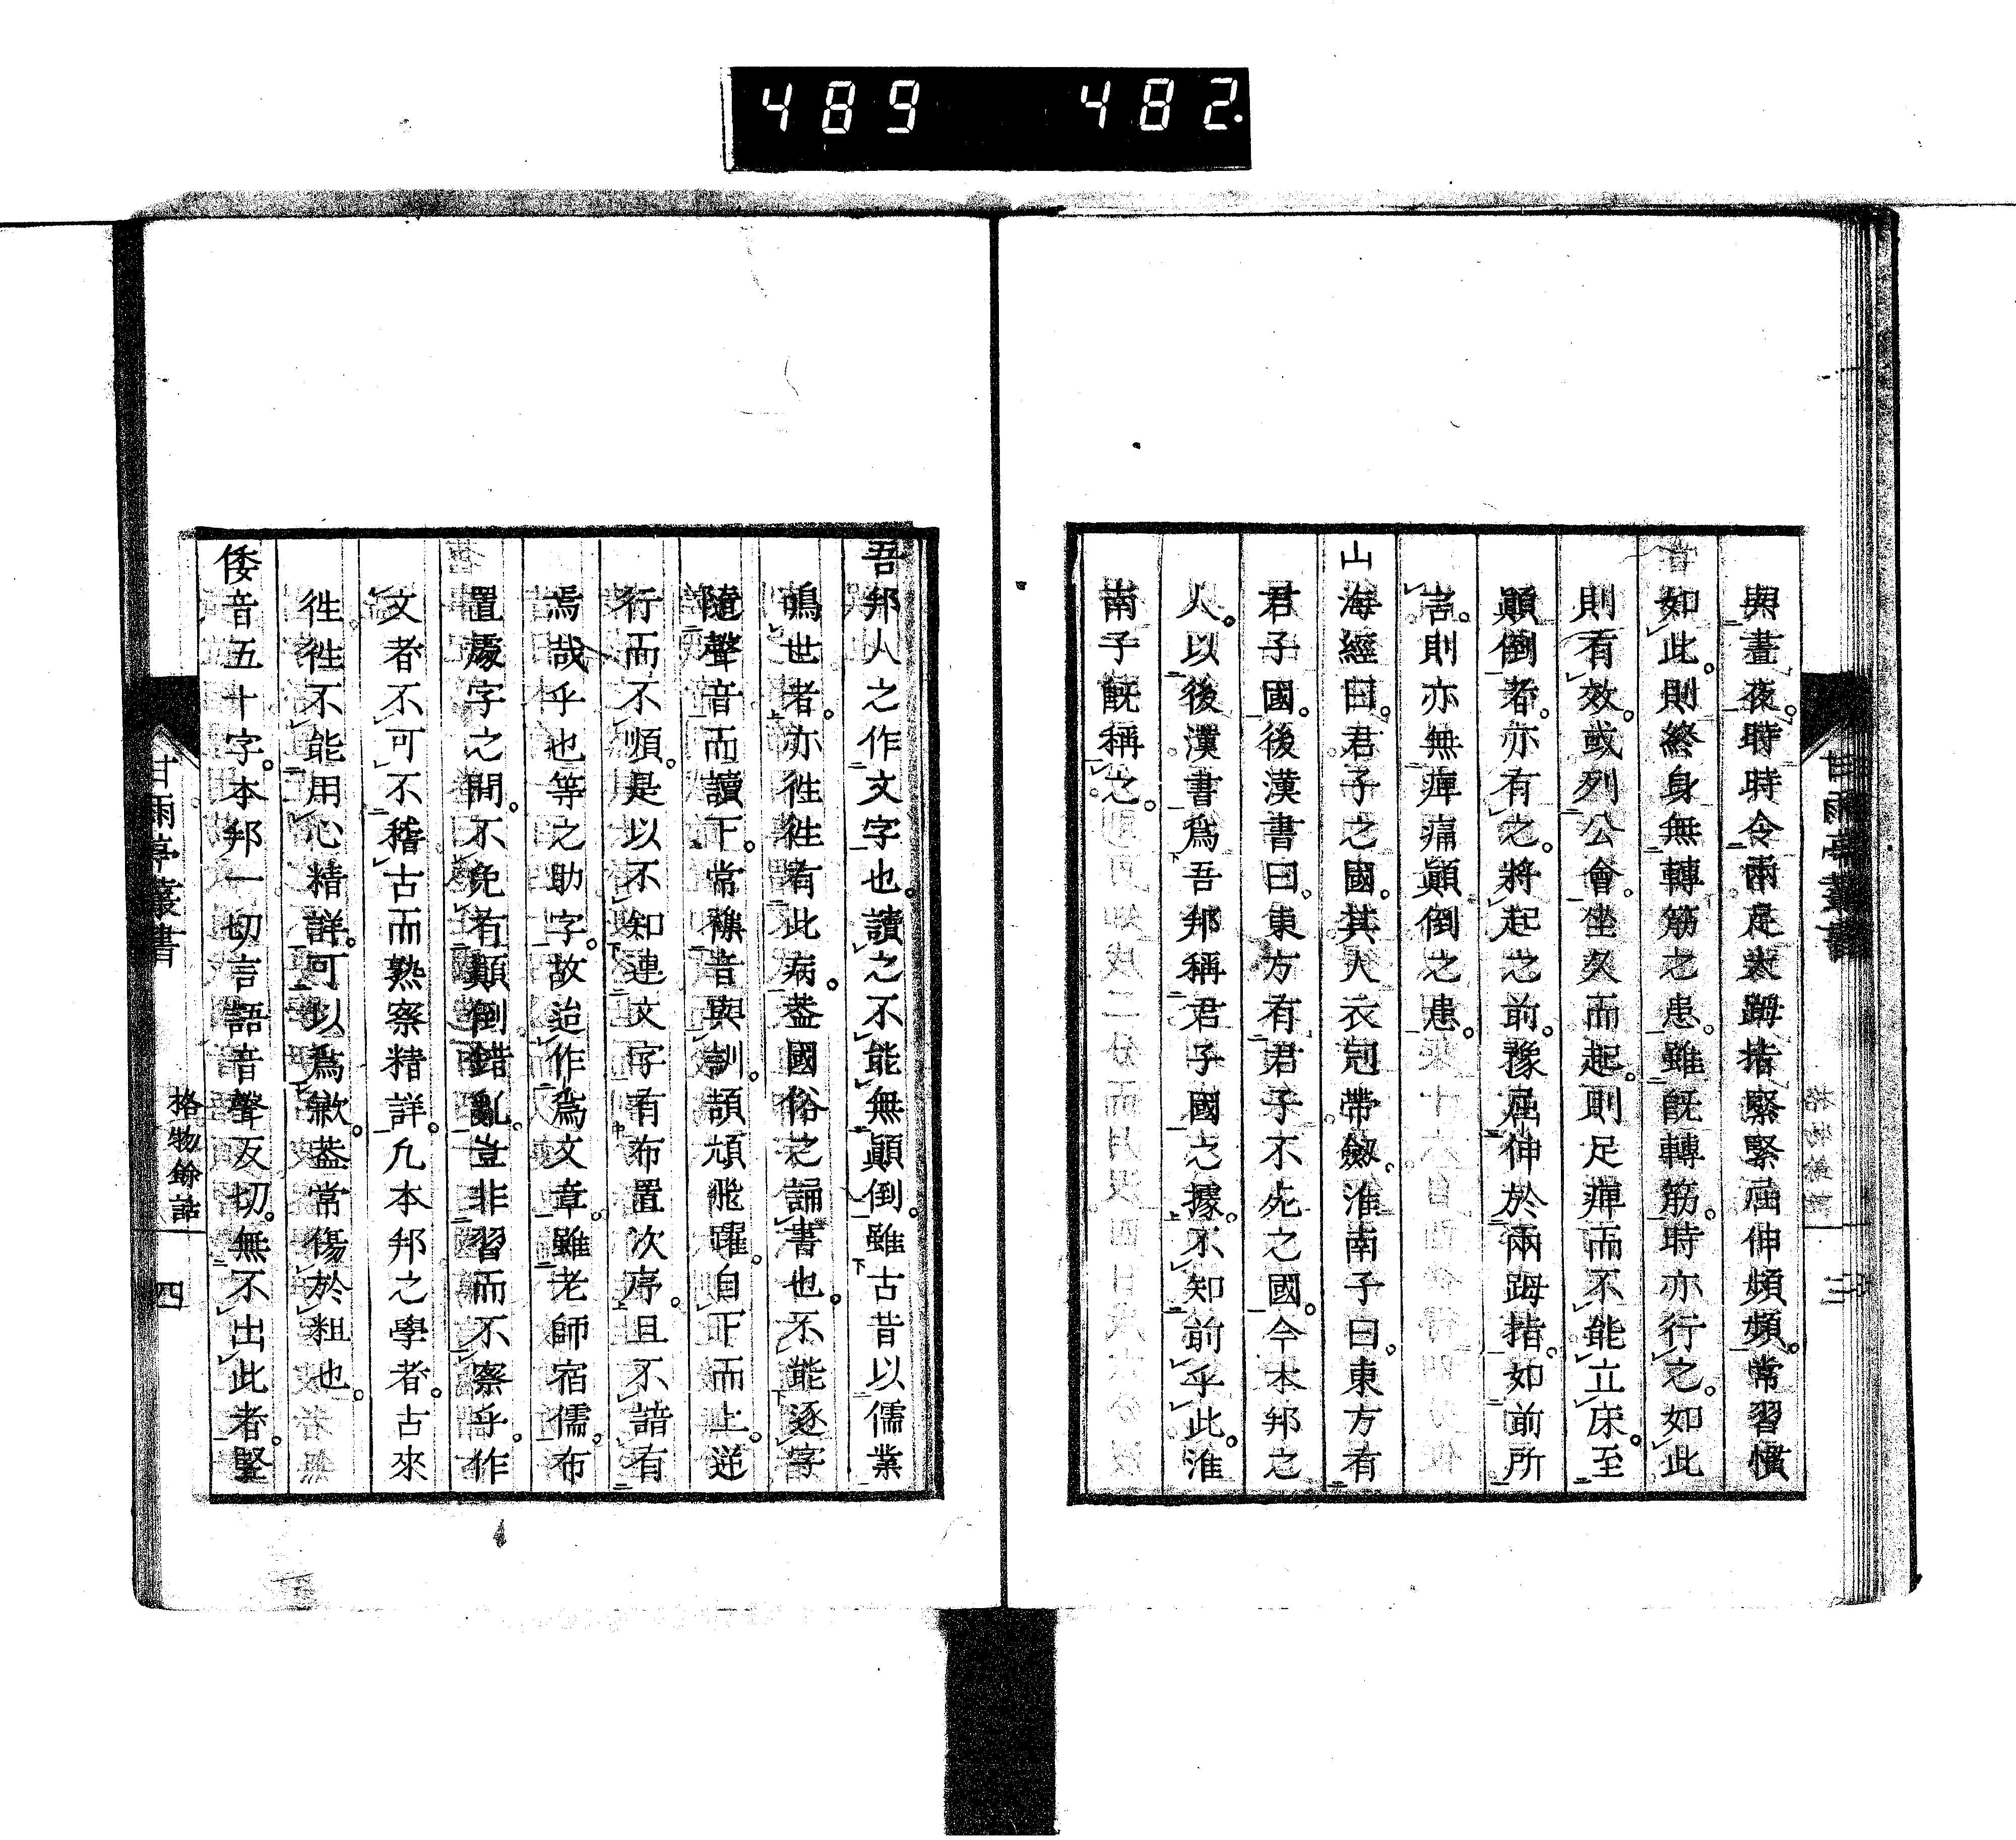 489 482.
與晝夜。時時令兩足大踇指緊緊屈伸頻頻。常習慣
如此。則終身無轉筋之患。雖旣轉筋。時亦行之。如此
則有效。或列公會。坐久而起。則足痺而不能立床。至
顚倒者。亦有之。將起之前。豫屈伸於兩踇指。如前所
言。則亦無痺痛顚倒之患。
山海經曰。君子之國。其人衣冠帶劔。淮南子曰。東方有
君子國。後漢書曰。東方有君子不死之國。今本邦之
人。以後漢書爲吾邦稱君子國之據。不知前乎此。淮
南子旣稱之。
吾邦人之作文字也。讀之不能無顚倒。雖古昔以儒業
鳴世者。亦徃徃有此病。葢國俗之誦書也。不能逐字
隨聲音而讀下。常襍音與訓。頡頏飛躍。自下而上。逆
行而不順。是以不知連文字有布置次序。且不諳有
焉哉乎也等之助字。故迨作爲文章。雖老師宿儒。布
置處字之間。不免有顚倒錯亂。豈非習而不察乎。作
文者不可不稽古而熟察精詳。凢本邦之學者。古來
徃徃不能用心精詳。可以爲歉。葢常傷於粗也。
倭音五十字。本邦一切言語音聲反切。無不出此者。竪
甘雨亭叢書
格物餘話
四